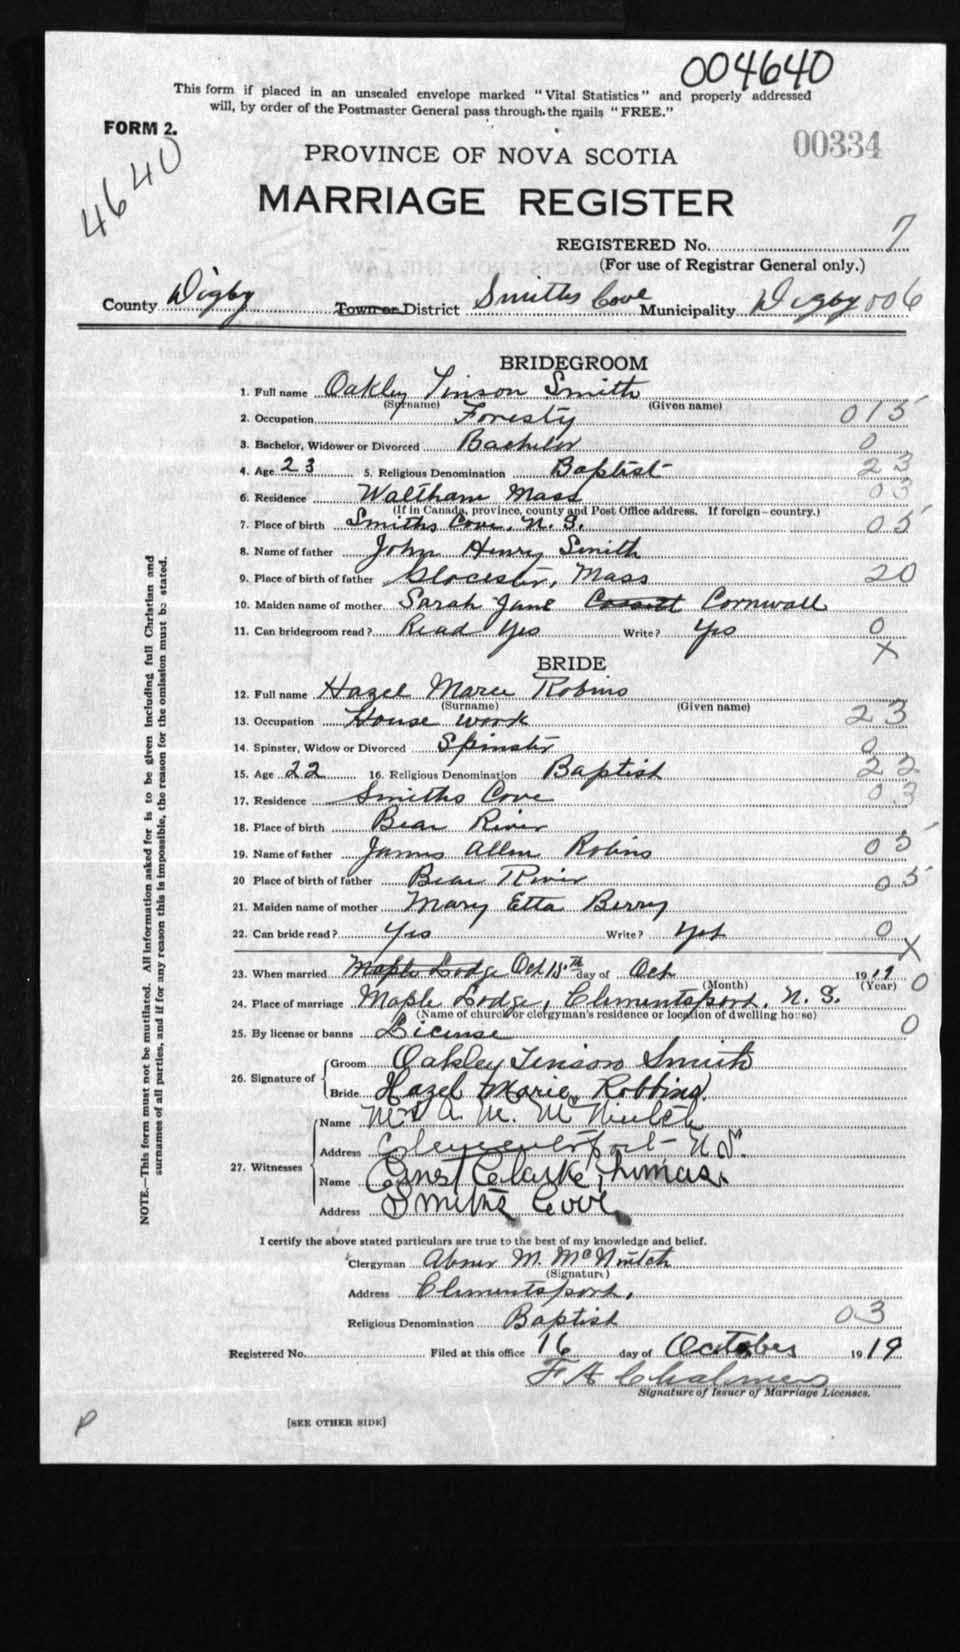 004640
This form if placed in an unsealed envelope marked "Vital Statistics" and properly addressed
will, by order of the Postmaster General pass through the mails "FREE."
FORM 2.
00334
4640
PROVINCE OF NOVA SCOTIA
MARRIAGE REGISTER
REGISTERED No. 7
(For use of Registrar General only.)
County Digby Town or District Smiths Cove Municipality Digby 006
BRIDEGROOM
1. Full name Oakley Tinson Smith
(Surname) (Given name)
2. Occupation Foresty 015
3. Bachelor, Widower or Divorced Bachelor 0
4. Age 23 5. Religious Denomination Baptist 23
6. Residence Waltham Mass 03
(If in Canada, province, county and Post Office address. If foreign—country.)
7. Place of birth Smiths Cove, N. S. 05
8. Name of father John Henry Smith
9. Place of birth of father Glocester, Mass 20
10. Maiden name of mother Sarah Jane Cossett Cornwall
11. Can bridegroom read? Read Yes Write? Yes 0
X
BRIDE
12. Full name Hazel Marie Robins
(Surname) (Given name)
13. Occupation House work 23
14. Spinster, Widow or Divorced Spinster 0
15. Age 22 16. Religious Denomination Baptist 22
17. Residence Smiths Cove 03
18. Place of birth Bear River
19. Name of father James Allen Robins 05
20 Place of birth of father Bear River 05
21. Maiden name of mother Mary Etta Berry
22. Can bride read? Yes Write? Yes 0
X
23. When married Maple Lodge Oct 15th day of Oct 1919 0
(Month) (Year)
24. Place of marriage Maple Lodge, Clementsport, N. S.
(Name of church or clergyman's residence or location of dwelling house)
25. By license or banns License 0
26. Signature of
Groom Oakley Tinson Smith
Bride Hazel Marie Robbins.
27. Witnesses
Name Mrs A. M. McNutch
Address Clementsport N S.
Name Ernest Clarke Thomas.
Address Smiths Cove
I certify the above stated particulars are true to the best of my knowledge and belief.
Clergyman Abner M. McNintch
(Signature)
Address Clementsport,
Religious Denomination Baptist 03
Registered No. Filed at this office 16 day of October 1919
F A Chalmers
Signature of Issuer of Marriage Licenses.
[SEE OTHER SIDE]
P
NOTE.—This form must not be mutilated. All information asked for is to be given including full Christian and
surnames of all parties, and if for any reason this is impossible, the reason for the omission must be stated.